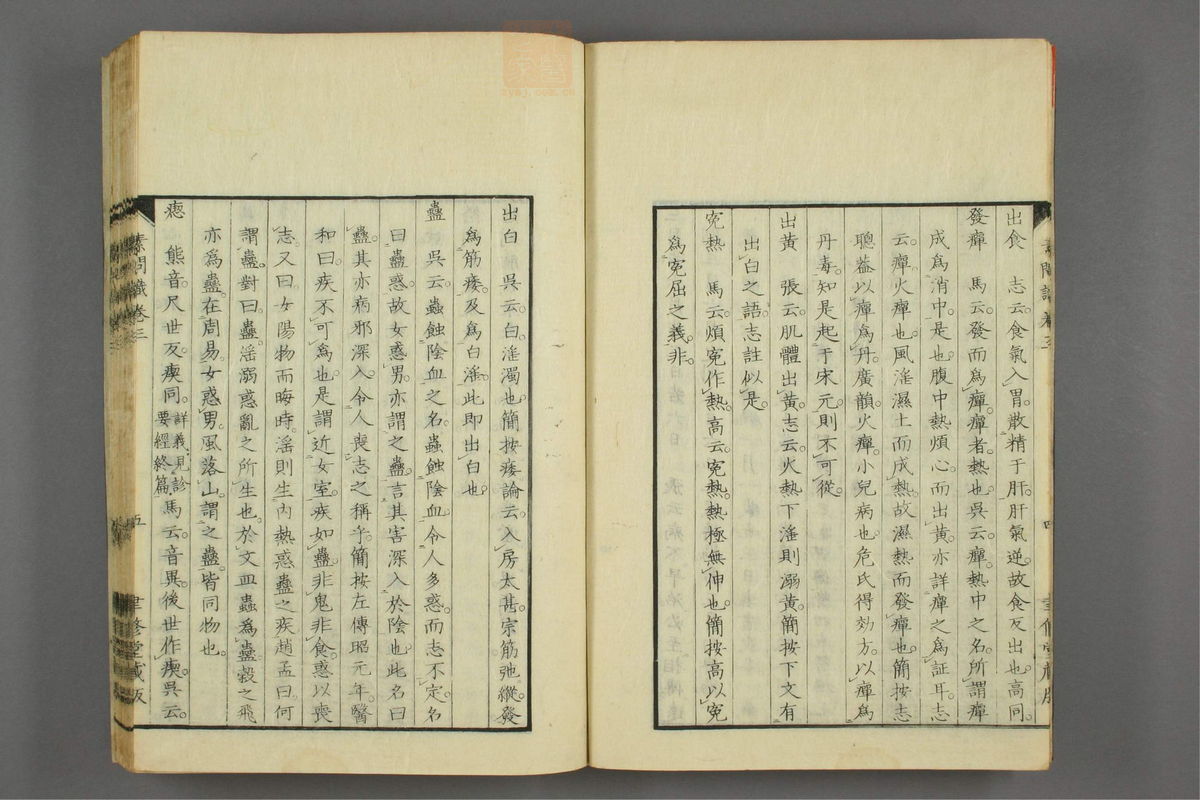 出食　志云。食氣入胃。散精于肝。肝氣逆。故食反出也。高同。
發癉　馬云。發而爲癉。癉者。熱也。吳云。癉。熱中之名。所謂癉
成爲消中。是也。腹中熱。煩心而出黃。亦詳癉之爲証耳。志
云。癉。火癉也。風淫濕土而成熱。故濕熱而發癉也。簡按志
聰葢以癉爲丹。廣韻。火癉。小兒病也。危氏得効方。以癉爲
丹毒。知是起于宋元。則不可從。
出黃　張云。肌體出黃。志云。火熱下淫則溺黃。簡按下文有
出白之語。志註似是。
冤熱　馬云。煩冤作熱。高云。冤熱。熱極無伸也。簡按高以冤
爲冤屈之義。非。
出白　吳云。白。淫濁也。簡按痿論云。入房太甚。宗筋弛縱。發
爲筋痿。及爲白淫。此即出白也。
蠱　吳云。蟲蝕陰血之名。蟲蝕陰血。令人多惑而志不定。名
曰蠱惑。故女惑男。亦謂之蠱。言其害深入於陰也。此名曰
蠱。其亦病邪深入。令人喪志之稱乎。簡按左傳昭元年。醫
和曰。疾不可爲也。是謂近女室。疾如蠱。非鬼非食。惑以喪
志。又曰。女陽物而晦時。淫則生內熱惑蠱之疾。趙孟曰。何
謂蠱。對曰。蠱。淫溺惑亂之所生也。於文皿蟲爲蠱。穀之飛
亦爲蠱。在周易。女惑男。風落山。謂之蠱。皆同物也。
瘛　熊音。尺世反。瘈同。詳義見診要經終篇。馬云。音異。後世作瘈。吳云。
素問識卷三
五
聿修堂藏版
四
zysj.com.cn